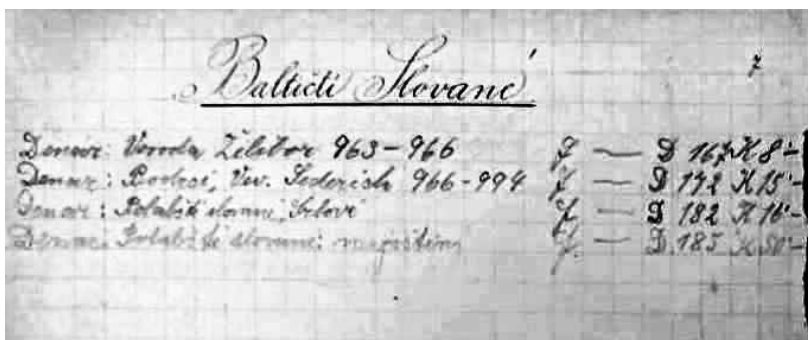 Baltičtí Slované
7
Denár: Vévoda Želibor 963-966 f — D 167 K 8'-
Denar: Bodrci, Vév. Federich 966-994 f — D 172 K 15'-
Denar: Polabští slované, f — D 182 K 16'-
Denar. Polabští slované: f. — D. 185 K 50'-